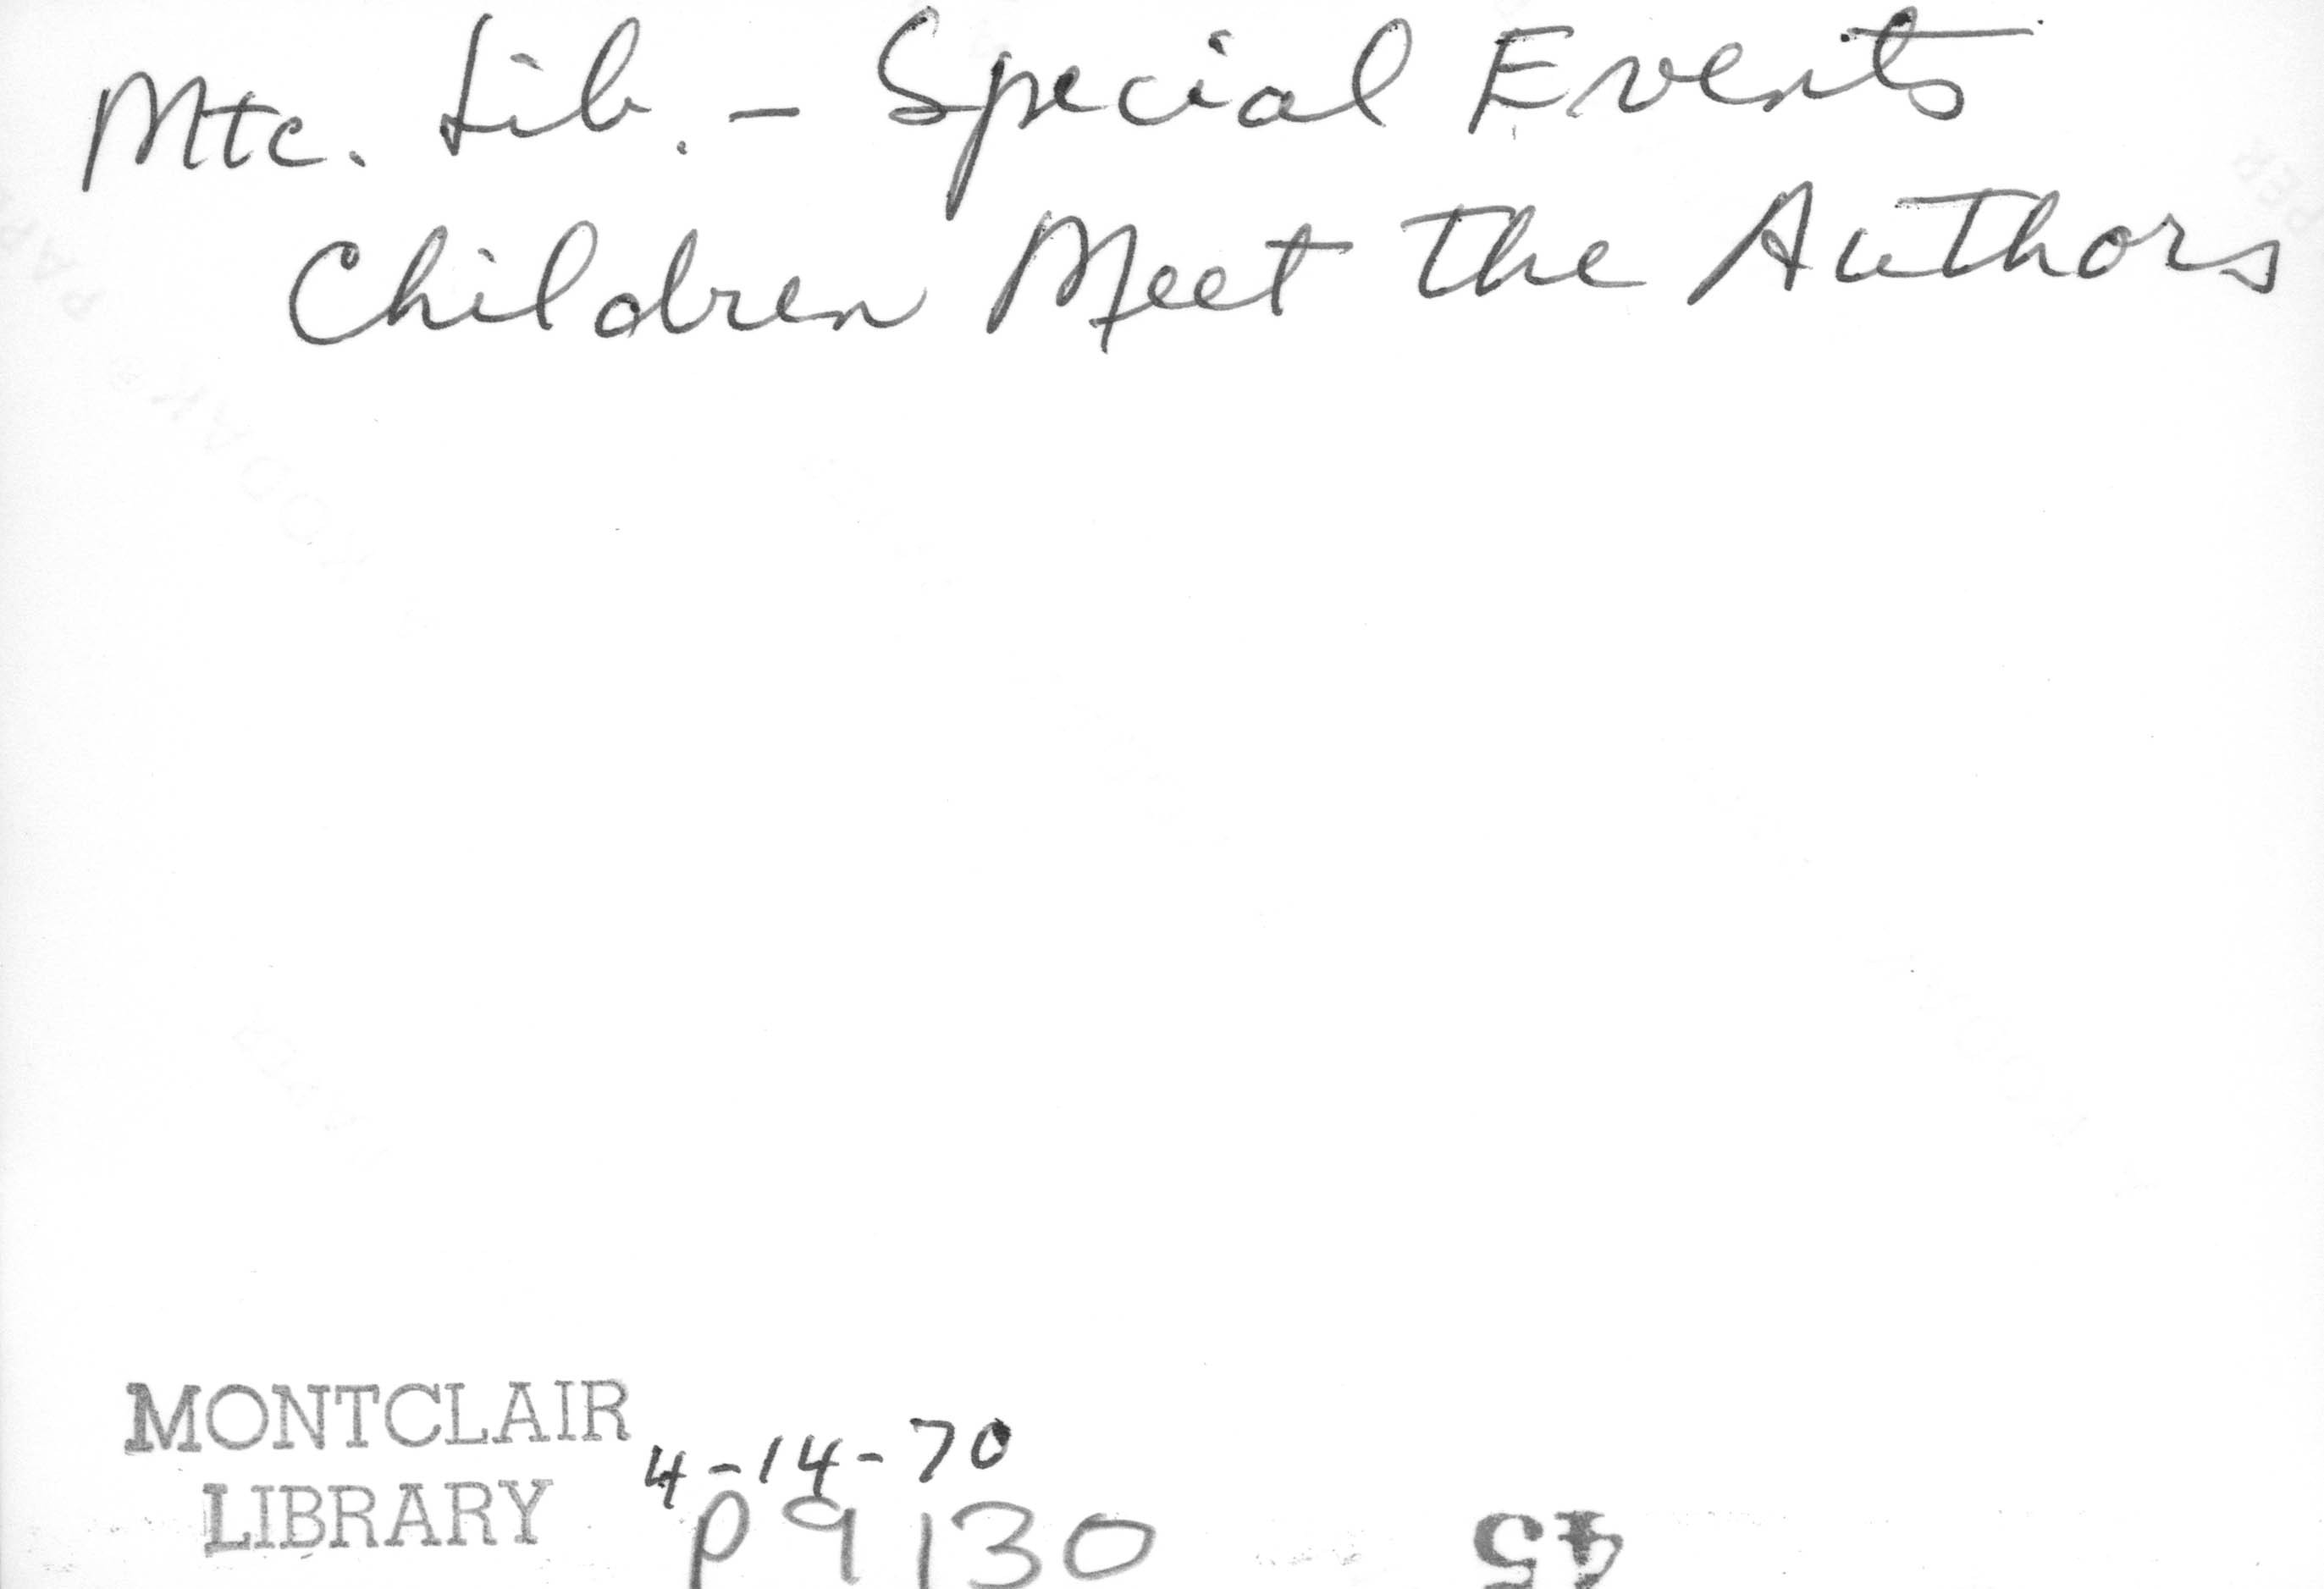 Mtc. Lib. - Special Events
Children Meet The Authors
MONTCLAIR
LIBRARY
4-14-70
P9130
45